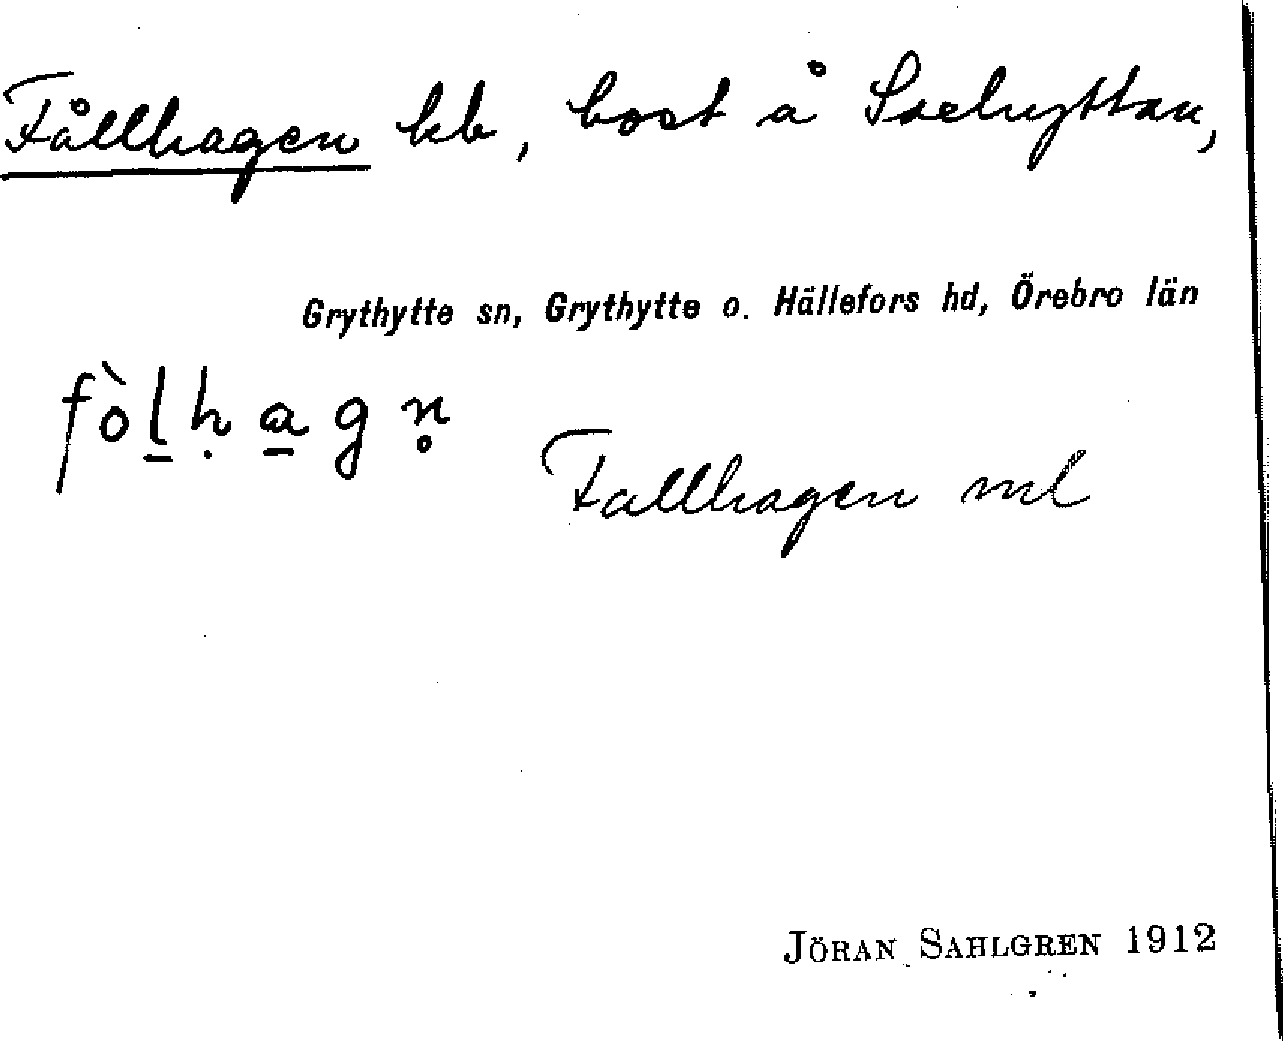 Fållhagen hb, bost å Saxhyttan,
Grythytte sn, Grythytte o. Hällefors hd, Örebro län
fòl̲ḥa̲gn̥
Fallhagen ml
JÖRAN SAHLGREN 1912